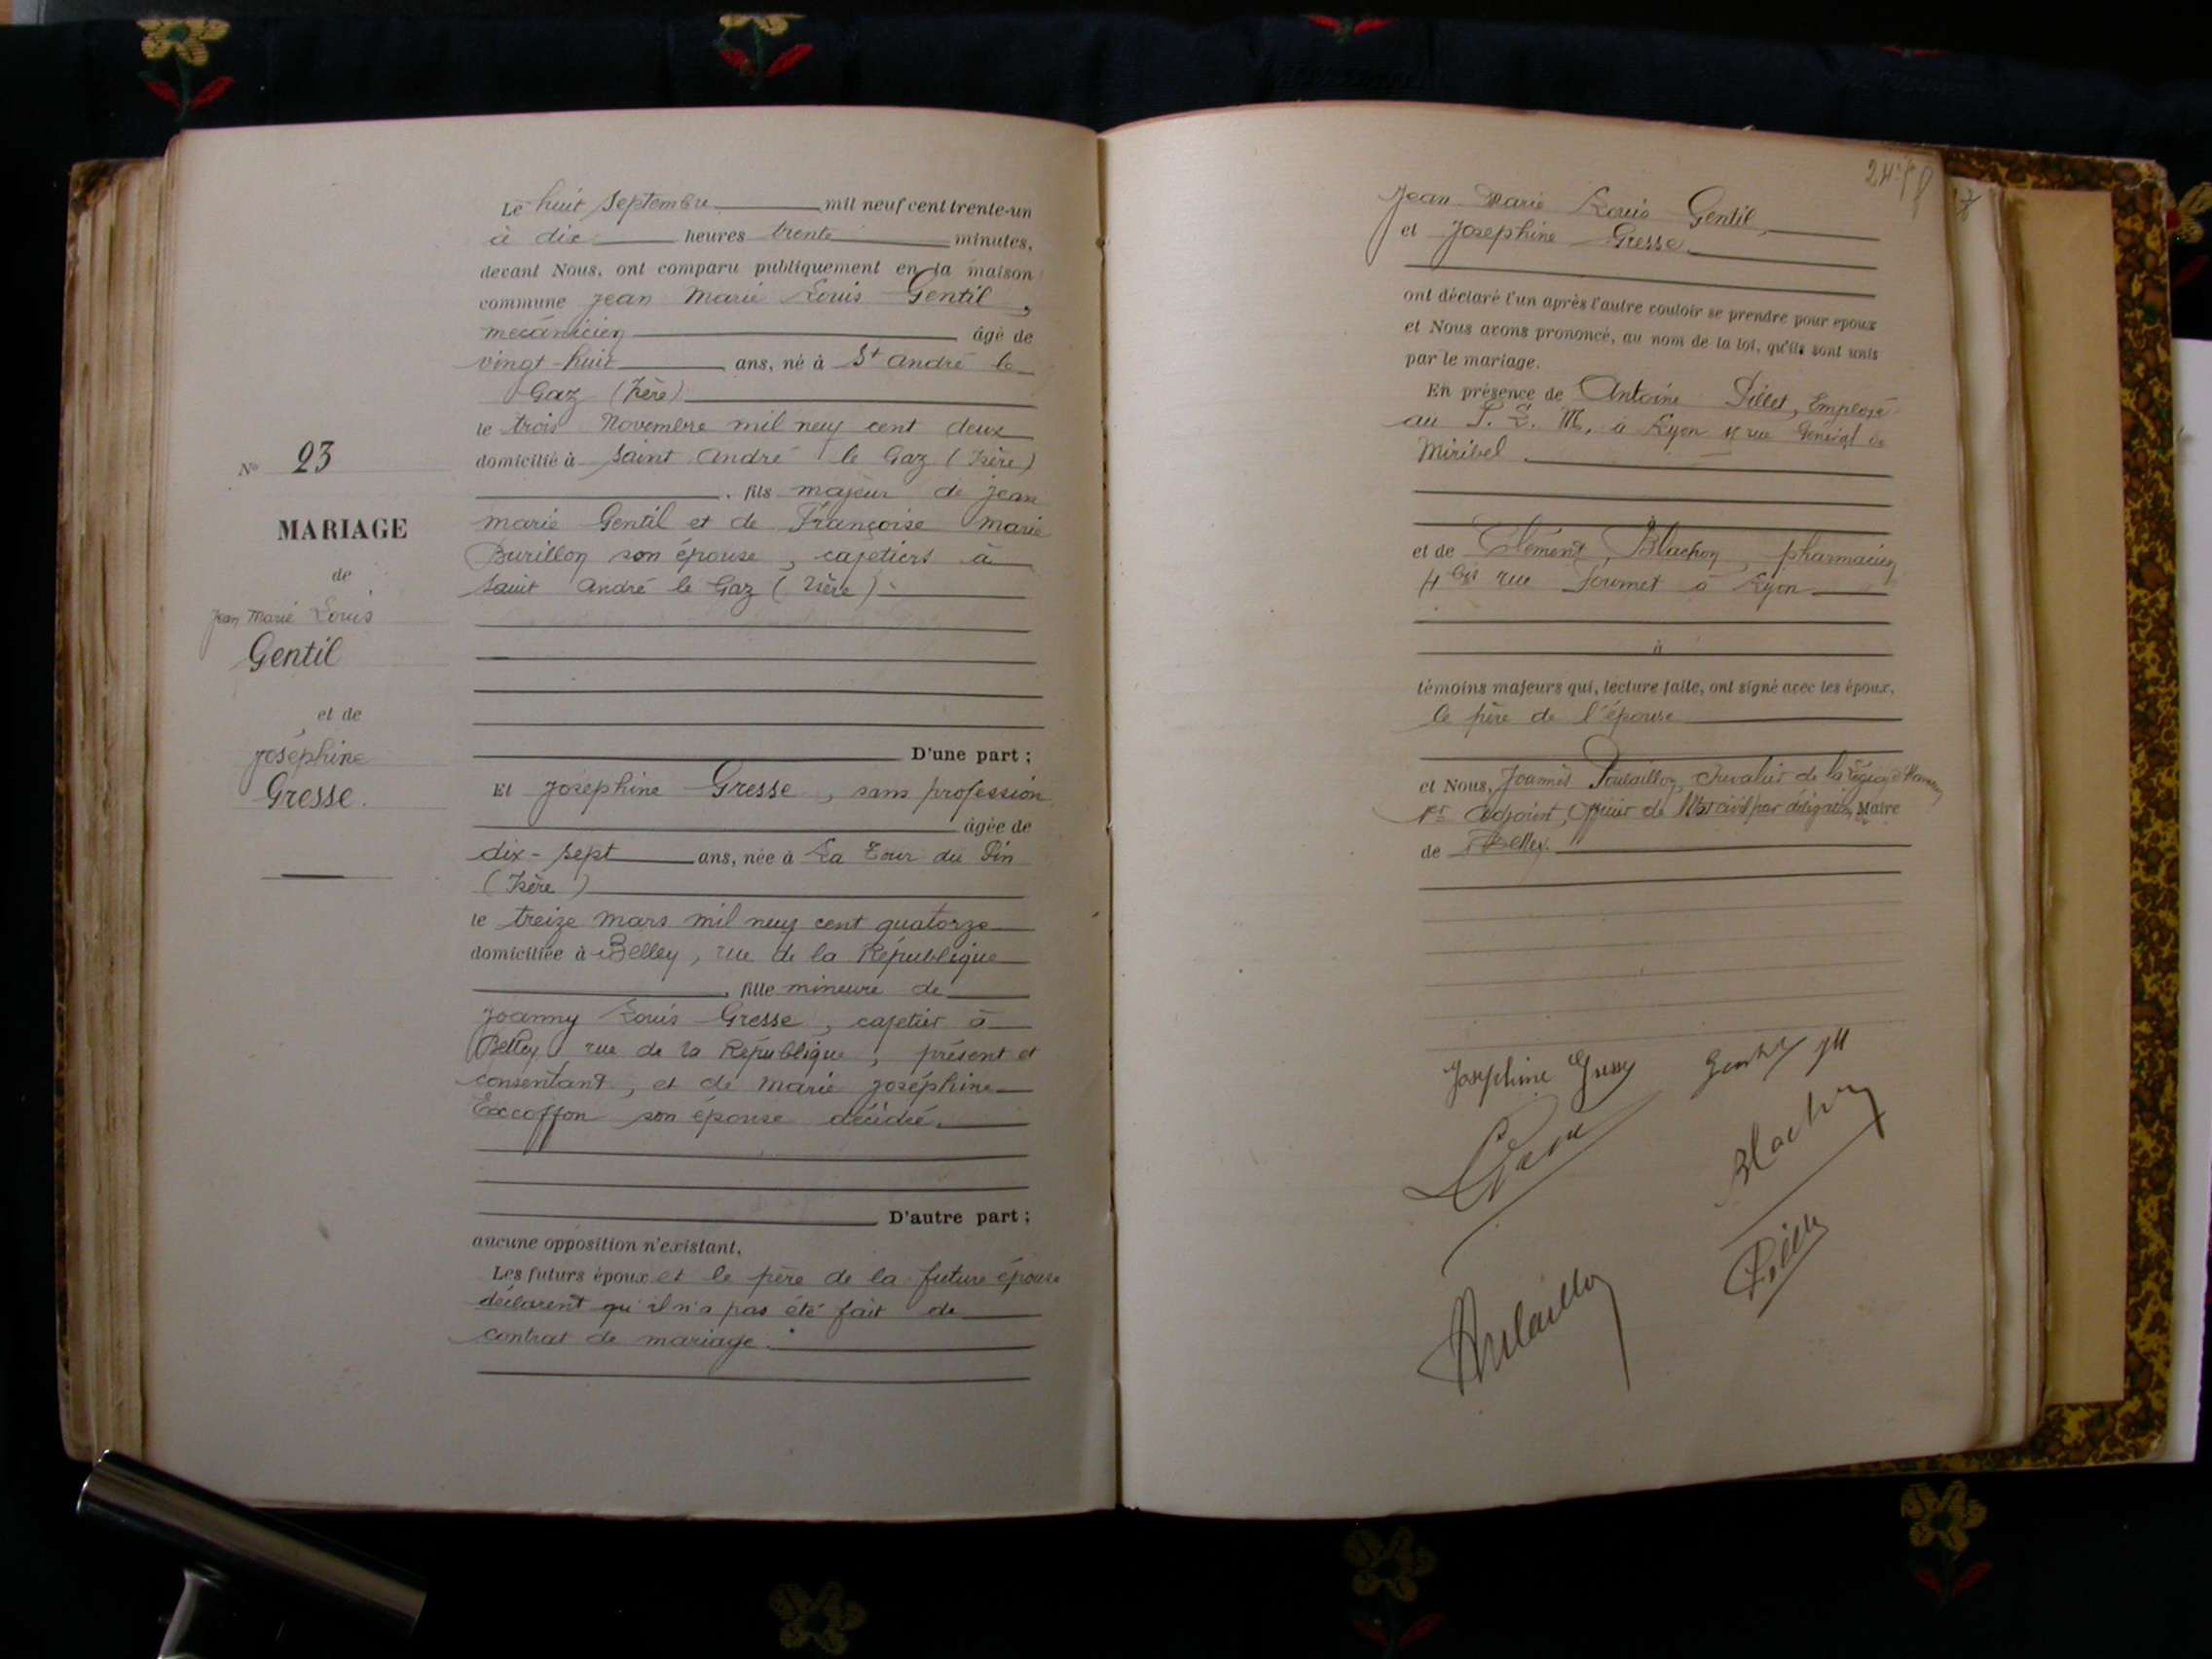 Le huit Septembre mil neuf cent trente-un
à dix heures trente minutes,
devant Nous, ont comparu publiquement en la maison
commune Jean Marie Louis Gentil,
mecânicien âgé de
vingt-huit ans, né à St André le
Gaz (Isère)
le trois Novembre mil neuf cent deux
domicilié à Saint André le Gaz (Isère)
, fils majeur de Jean
Marie Gentil et de Françoise Marie
Burillon son épouse, cafetiers à
Saint André le Gaz (Isère)
No 23
MARIAGE
de
Jean Marie Louis
Gentil
et de
Joséphine
Gresse.
D'une part ;
Et Joséphine Gresse, sans profession
âgée de
dix-sept ans, née à La Tour du Pin
(Isère)
le treize Mars mil neuf cent quatorze
domiciliée à Belley, rue de la République
, fille mineure de
Joanny Louis Gresse, cafetier à
Belley rue de la République, présent et
consentant, et de Marie Joséphine
Excoffon son épouse décédée.
D'autre part ;
aucune opposition n'existant,
Les futurs époux et le père de la future épouse
déclarent qu'il n'a pas été fait de
contrat de mariage.
Jean Marie Louis Gentil,
et Joséphine Gresse
ont déclaré l'un après l'autre vouloir se prendre pour époux
et Nous avons prononcé, au nom de la loi, qu'ils sont unis
par le mariage.
En présence de Antoine Pillet, Employé
au P. L. M. à Lyon rue Général de
Miribel.
et de Clément Blachon, pharmacien
4 bis rue à Lyon
à
témoins majeurs qui, lecture faite, ont signé avec les époux,
le père de l'épouse
et Nous, Joannès Poulaillon, Chevalier de la Légion d'Honneur
1er Adjoint, Officier de l'Etat civil par délégation, Maire
de Belley.
Joséphine Gresse
Gentil JM
Gresse
Blachon
Pillet
Poulaillon